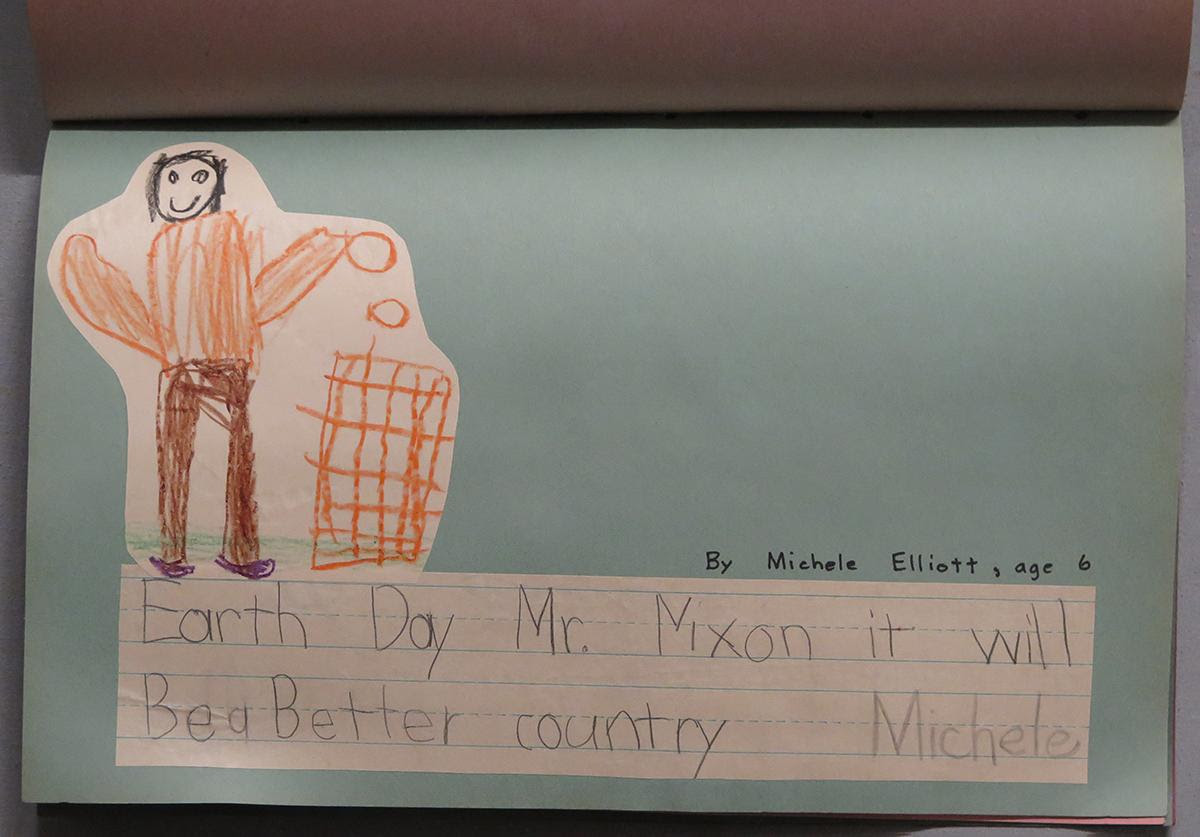 By Michele Elliott, age 6
Earth Day Mr. Nixon it will
Be a Better country Michele